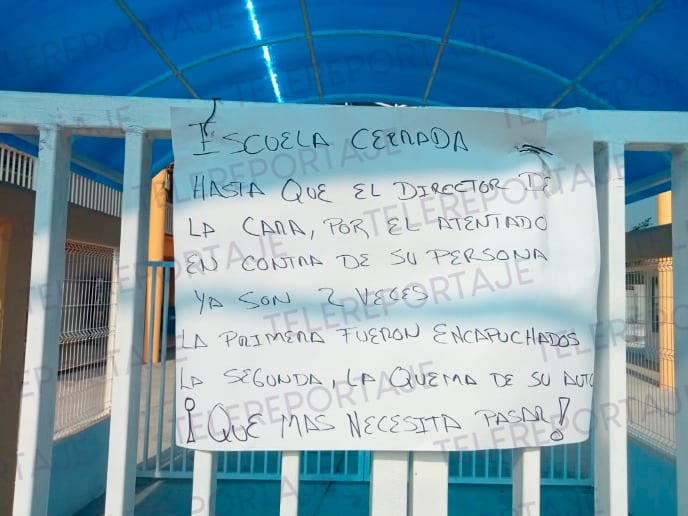 ESCUELA CERRADA
HASTA QUE EL DIRECTOR DE
LA CARA, POR EL ATENTADO
EN CONTRA DE SU PERSONA
YA SON 2 VECES
LA PRIMERA FUERON ENCAPUCHADOS
LA SEGUNDA, LA QUEMA DE SU AUTO
¡QUE MAS NECESITA PASAR!
TELEREPORTAJE